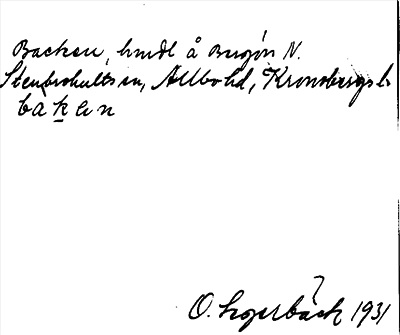 Backen, hmdl å Bergön N.
Stenbrohult sn, Allbo hd, Kronobergs l.
baken
O. Lagerbäck 1931